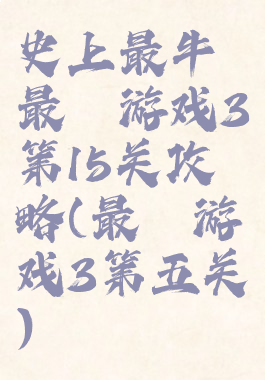 史上最牛
最 游戏3
第15关攻
略(最 游
戏3第五关
)